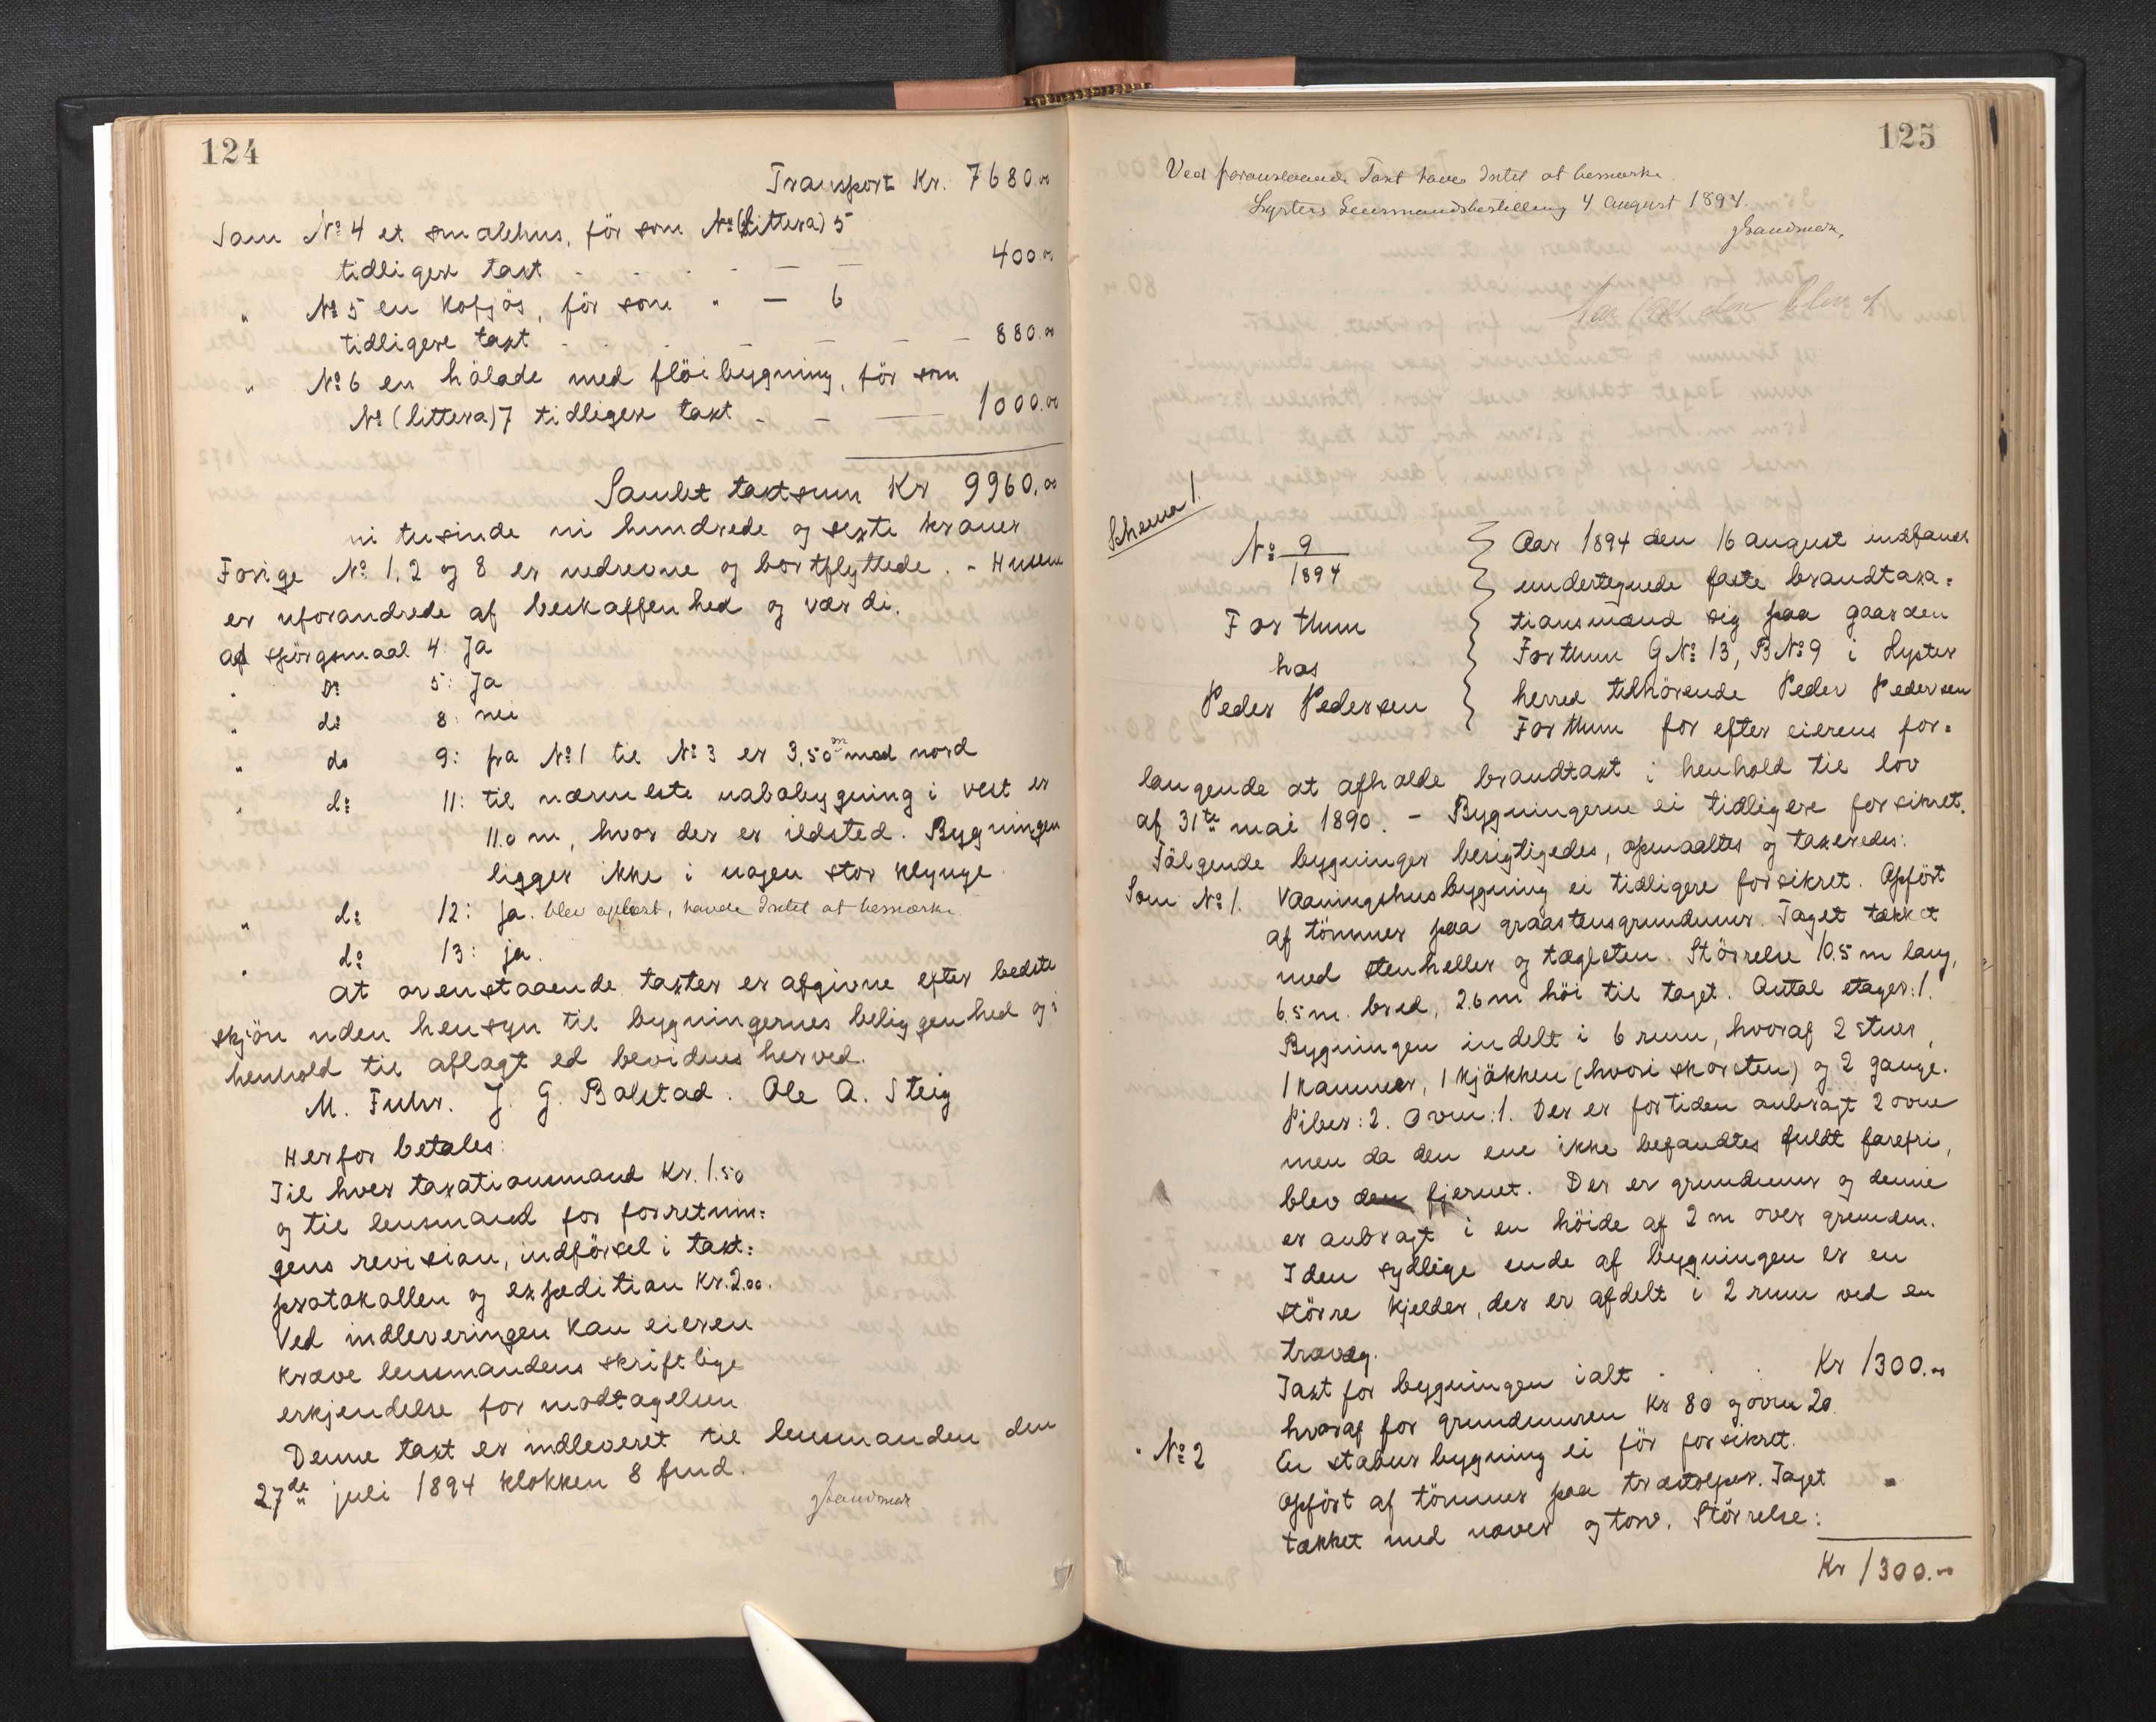 124
Transport Kr. 7680.00
Som No 4 et smalehus, för som No (littera) 5
tidligere taxt - - - - - 400.00
" No 5 en kofjös, för som " — 6
tidligere taxt - - - - - 880.00
" No 6 en hölade med flöibygning, för som
No (littera) 7 tidligere taxt - - — 1000.00
Samlet taxtsum Kr 9960.00
ni tusinde ni hundrede og sexti kroner
Forige No 1, 2 og 8 er nedrevne og bortflyttede. - Husene
er uforandrede af beskaffenhed og værdi.
af spörgsmaal 4: Ja
" Do 5: Ja
" do 8: nei
" do 9: fra No 1 til No 3 er 3,50 m mod nord
" do 11: til nærmeste nabobygning i vest er
11.0 m, hvor der er ildsted. Bygningen
ligger ikke i nogen stor klynge.
" do 12: ja. blev oplæst, havde Intet at bemærke
" do 13: ja.
At ovenstaaende taxter er afgivne efter bedste
skjön uden hensyn til bygningernes beliggenhed og i
henhold til aflagt ed bevidnes herved.
M. Fuhr. J. G. Bolstad. Ole A. Steig
Herfor betales:
Til hver taxationsmand Kr. 1.50
og til lensmand for forretnin=
gens revision, indförsel i taxt=
protokollen og expedition Kr. 2.00.
Ved indleveringen kan eieren
kræve lensmandens skriftlige
erkjendelse for modtagelsen
Denne taxt er indleveret til lensmanden den
27de juli 1894 klokken 8 fmd.
125
Ved foranstaaende Taxt haves Intet at bemærke.
Lysters Lensmandsbestilling 4 august 1894.
Schema 1.
No 9/1894
Forthun
hos
Peder Pedersen
Aar 1894 den 16 august indfandt
undertegnede faste brandtaxa=
tionsmænd sig paa gaarden
Forthun GNo 13, BNo 9 i Lyster
herred tilhörende Peder Pedersen
Forthun for efter eierens for=
langende at afholde brandtaxt i henhold til lov
af 31te mai 1890. - Bygningerne ei tidligere forsikret.
Fölgende bygninger besigtigedes, opmaaltes og taxeredes:
Som No 1. Vaaningshusbygning ei tidligere forsikret. Opfört
af tömmer paa graastensgrundmur. Taget tækket
med stenheller og tæglsten. Störrelse 10.5 m lang,
6.5 m. bred, 2.6 m höi til taget. Antal etager: 1.
Bygningen indelt i 6 rum, hvoraf 2 stuer,
1 kammer, 1 kjökken (hvori skorsten) og 2 gange.
Piber: 2. Ovn: 1. Der er fortiden anbragt 2 ovne
men da den ene ikke befandtes fuldt farefri,
blev den fjernet. Der er grundmur og denne
er anbragt i en höide af 2 m over grunden.
I den sydlige ende af bygningen er en
större kjelder, der er afdelt i 2 rum ved en
trævæg.
Taxt for bygningen ialt - . . Kr 1300.00
hvoraf for grundmuren Kr 80 og ovn 20.
" No 2 En stabursbygning ei för forsikret.
Opfört af tömmer paa træstolper. Taget
tækket med næver og torv. Störrelse:
Kr 1300.00